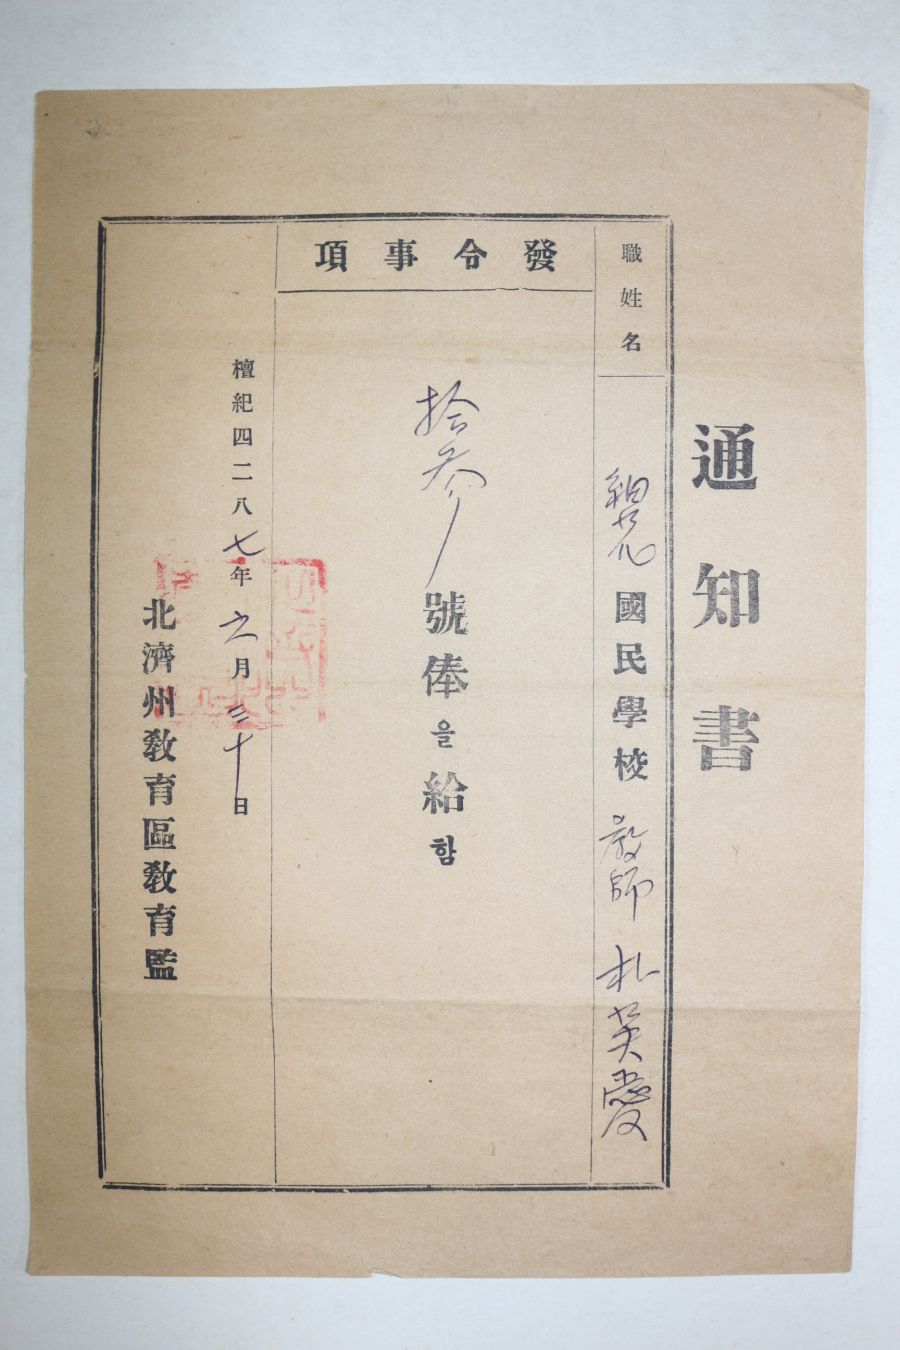 通知書
職姓名
國民學校 敎師 朴英愛
發令事項
拾参號俸을給함
檀紀四二八七年 月三十日
北濟州敎育區敎育監